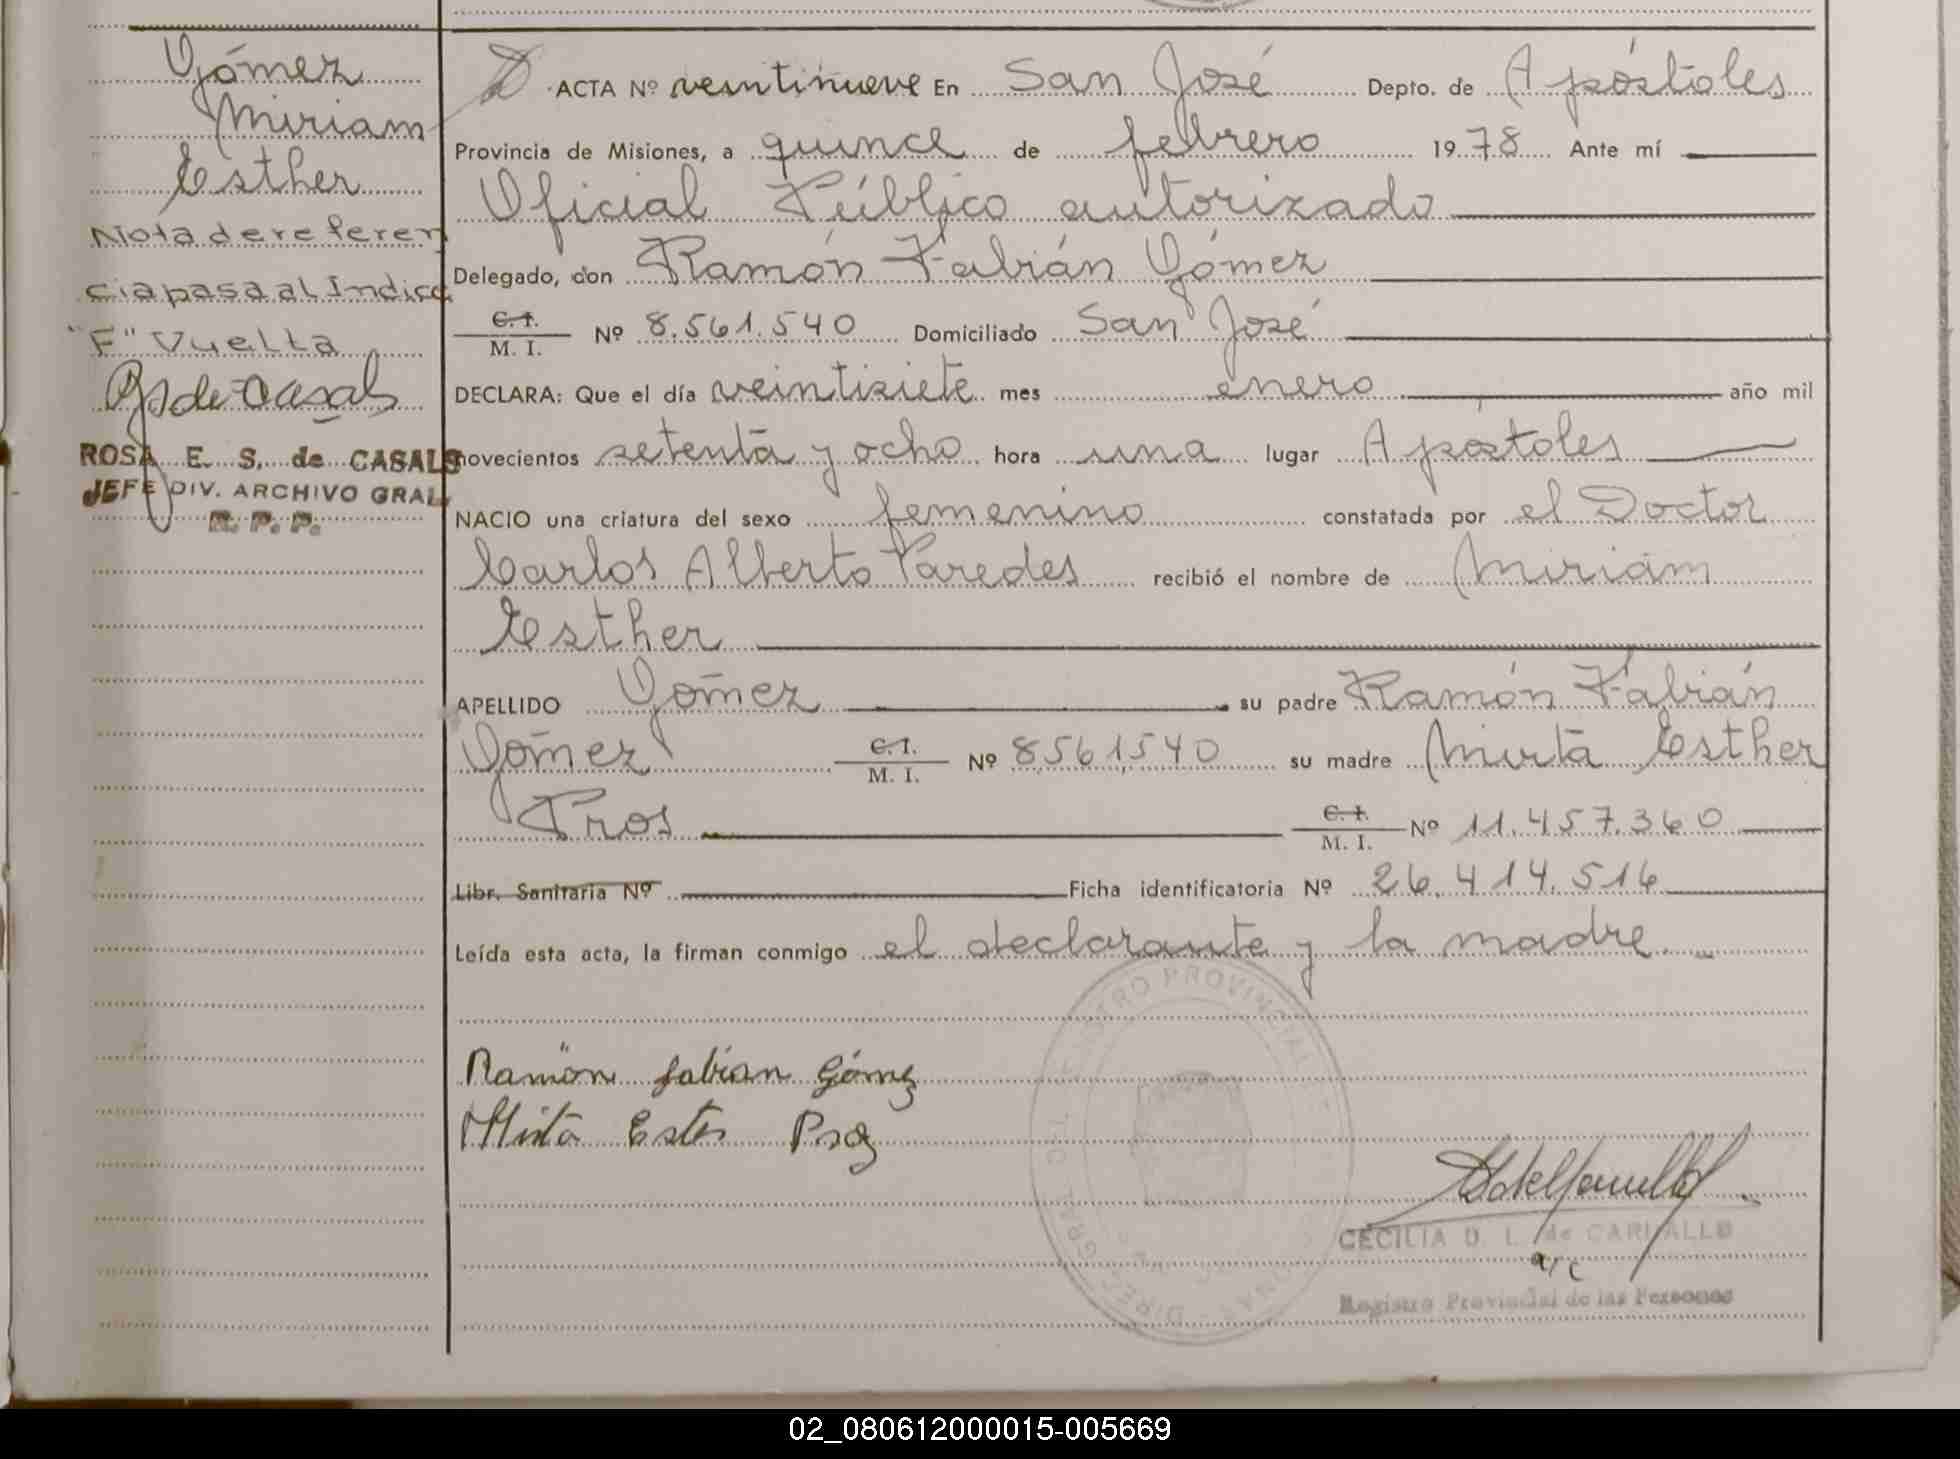 Gómez
Miriam
Esther
Nota de referen
cia pasa al Indice
"F" Vuelta
ROSA E. S. de CASALS
JEFE DIV. ARCHIVO GRAL.
R. P. P.
ACTA Nº veintinueve En San José Depto. de Apóstoles
Provincia de Misiones, a quince de febrero 1978 Ante mí
Oficial Público autorizado
Delegado, don Ramón Fabián Gómez
C.I. / M. I. Nº 8.561.540 Domiciliado San José
DECLARA: Que el día veintisiete mes enero año mil
novecientos setenta y ocho hora una lugar Apóstoles
NACIO una criatura del sexo femenino constatada por el Doctor
Carlos Alberto Paredes recibió el nombre de Miriam
Esther
APELLIDO Gómez su padre Ramón Fabián
Gómez C.I. / M. I. Nº 8.561.540 su madre Mirta Esther
Pros C.I. / M. I. Nº 11.457.360
Libr. Sanitaria Nº Ficha identificatoria Nº 26.414.516
Leída esta acta, la firman conmigo el declarante y la madre.
Ramón fabian Gómez
Mirta Ester
CECILIA D. L. de CARVALLO
a/c
Registro Provincial de las Personas
02_080612000015-005669